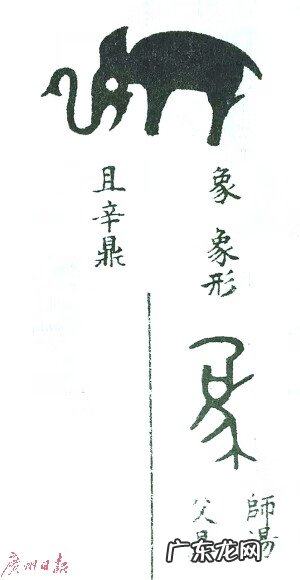 象 象形
且辛鼎
師湯
父
廣州日報
广东龙网